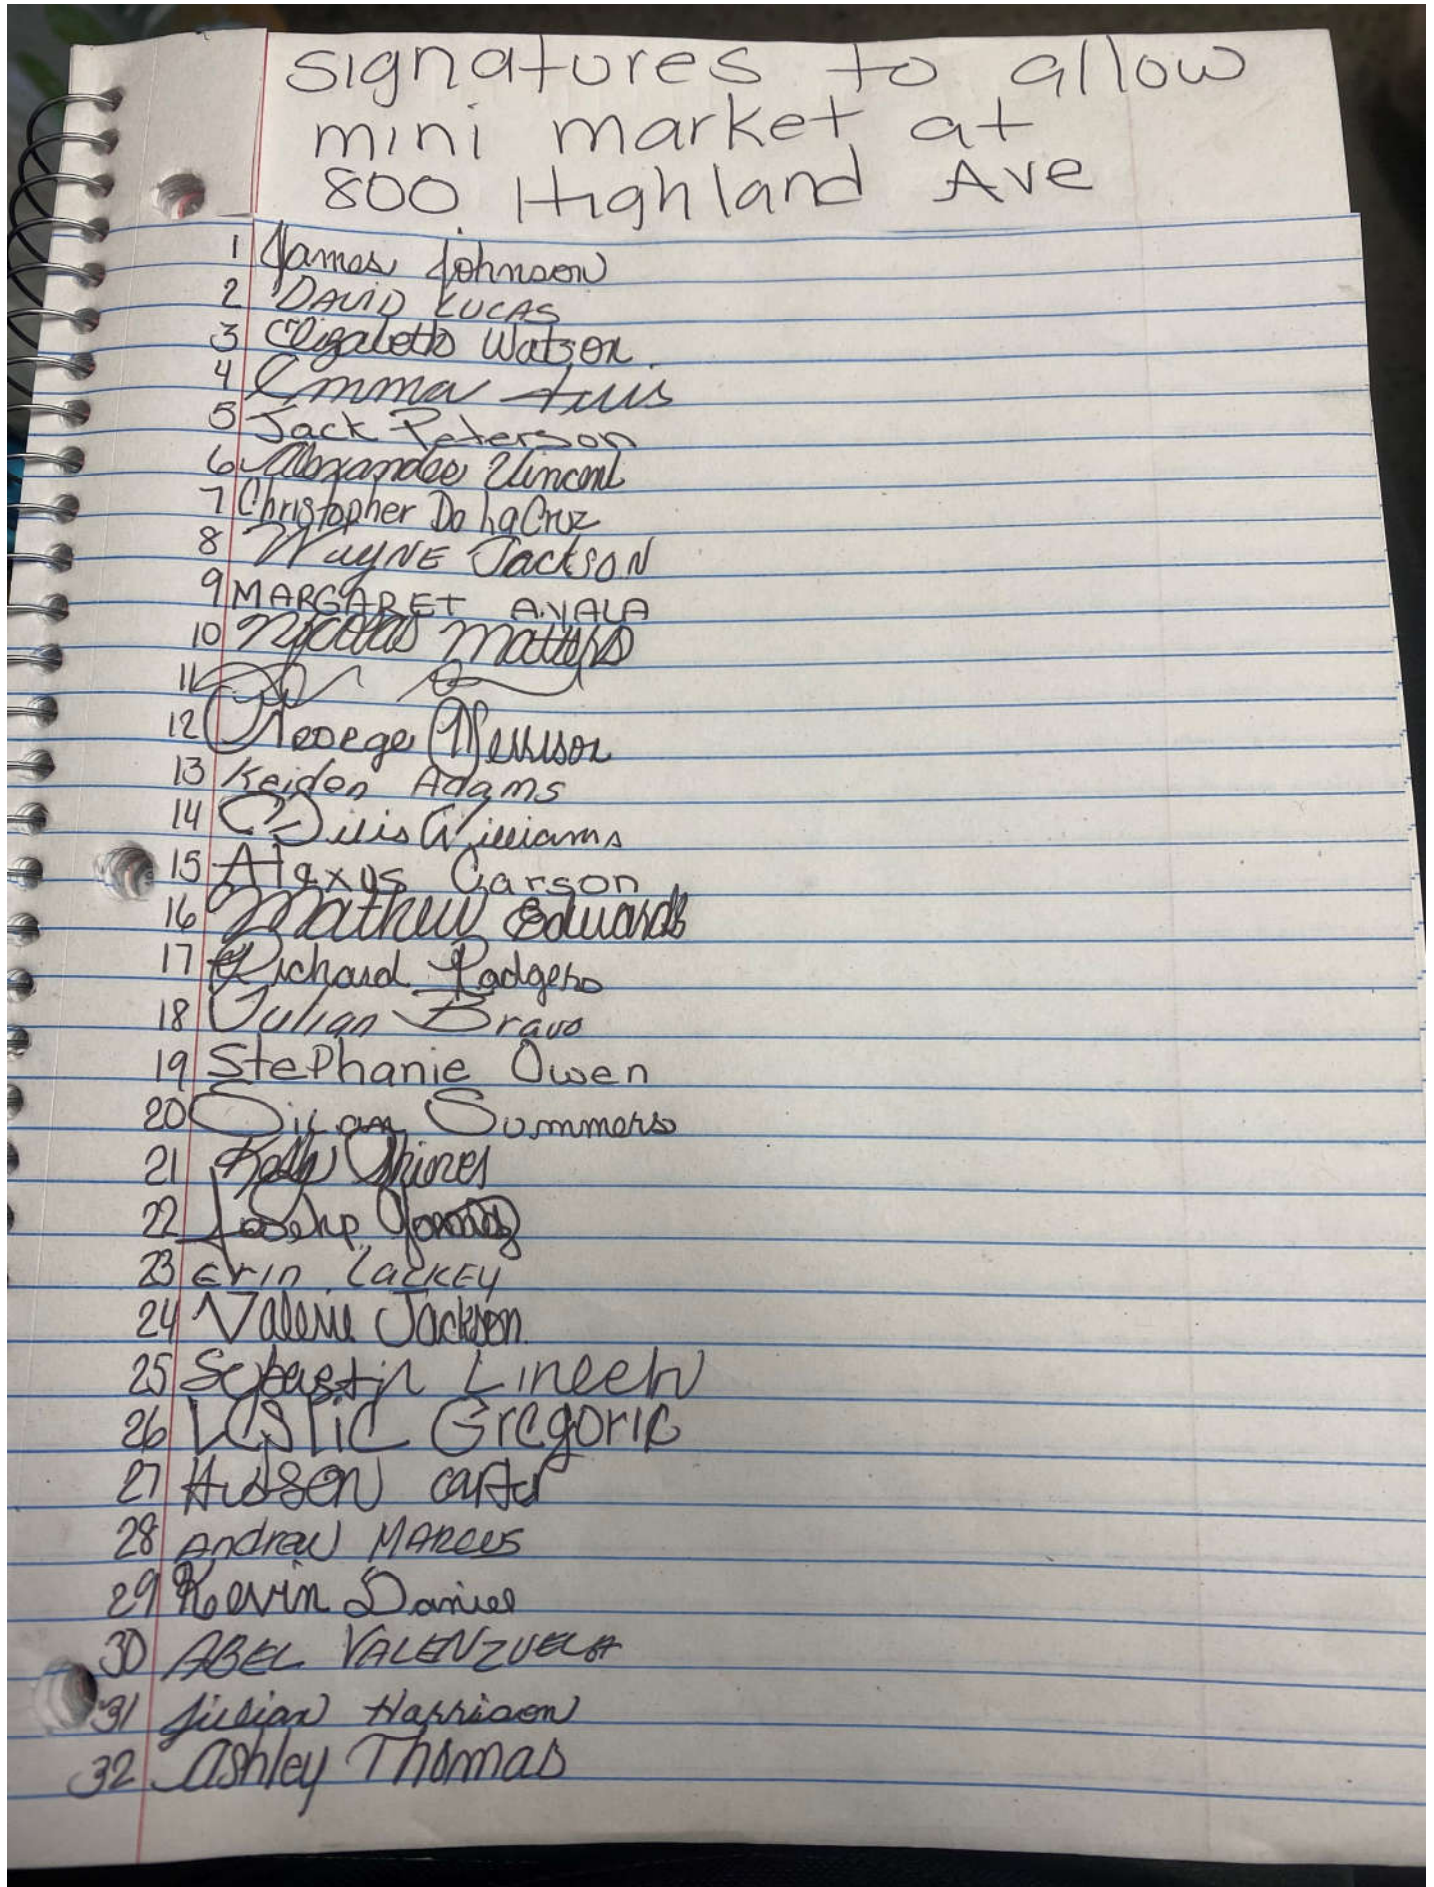 signatures to allow
mini market at
800 Highland Ave
1 James Johnson
2 DAVID LUCAS
3 Elizabeth Watson
4 Emma
5 Jack Peterson
6 Vincent
7 Christopher De La Cruz
8 WAYNE JACKSON
9 MARGARET AYALA
10 Nicolas
11
12 George
13 Keidon Adams
14 Williams
15 Alexus Carson
16 Mathew Edwards
17 Richard Rodgers
18 Julian Bravo
19 Stephanie Owen
20 Summers
21 Kelly Shires
22
23 Erin LACKEY
24 Valerie Jackson
25
26 Gregorie
27 HUDSON carter
28 Andrew MARCUS
29 Kevin Daniel
30 ABEL VALENZUELA
31 Harrison
32 Ashley Thomas